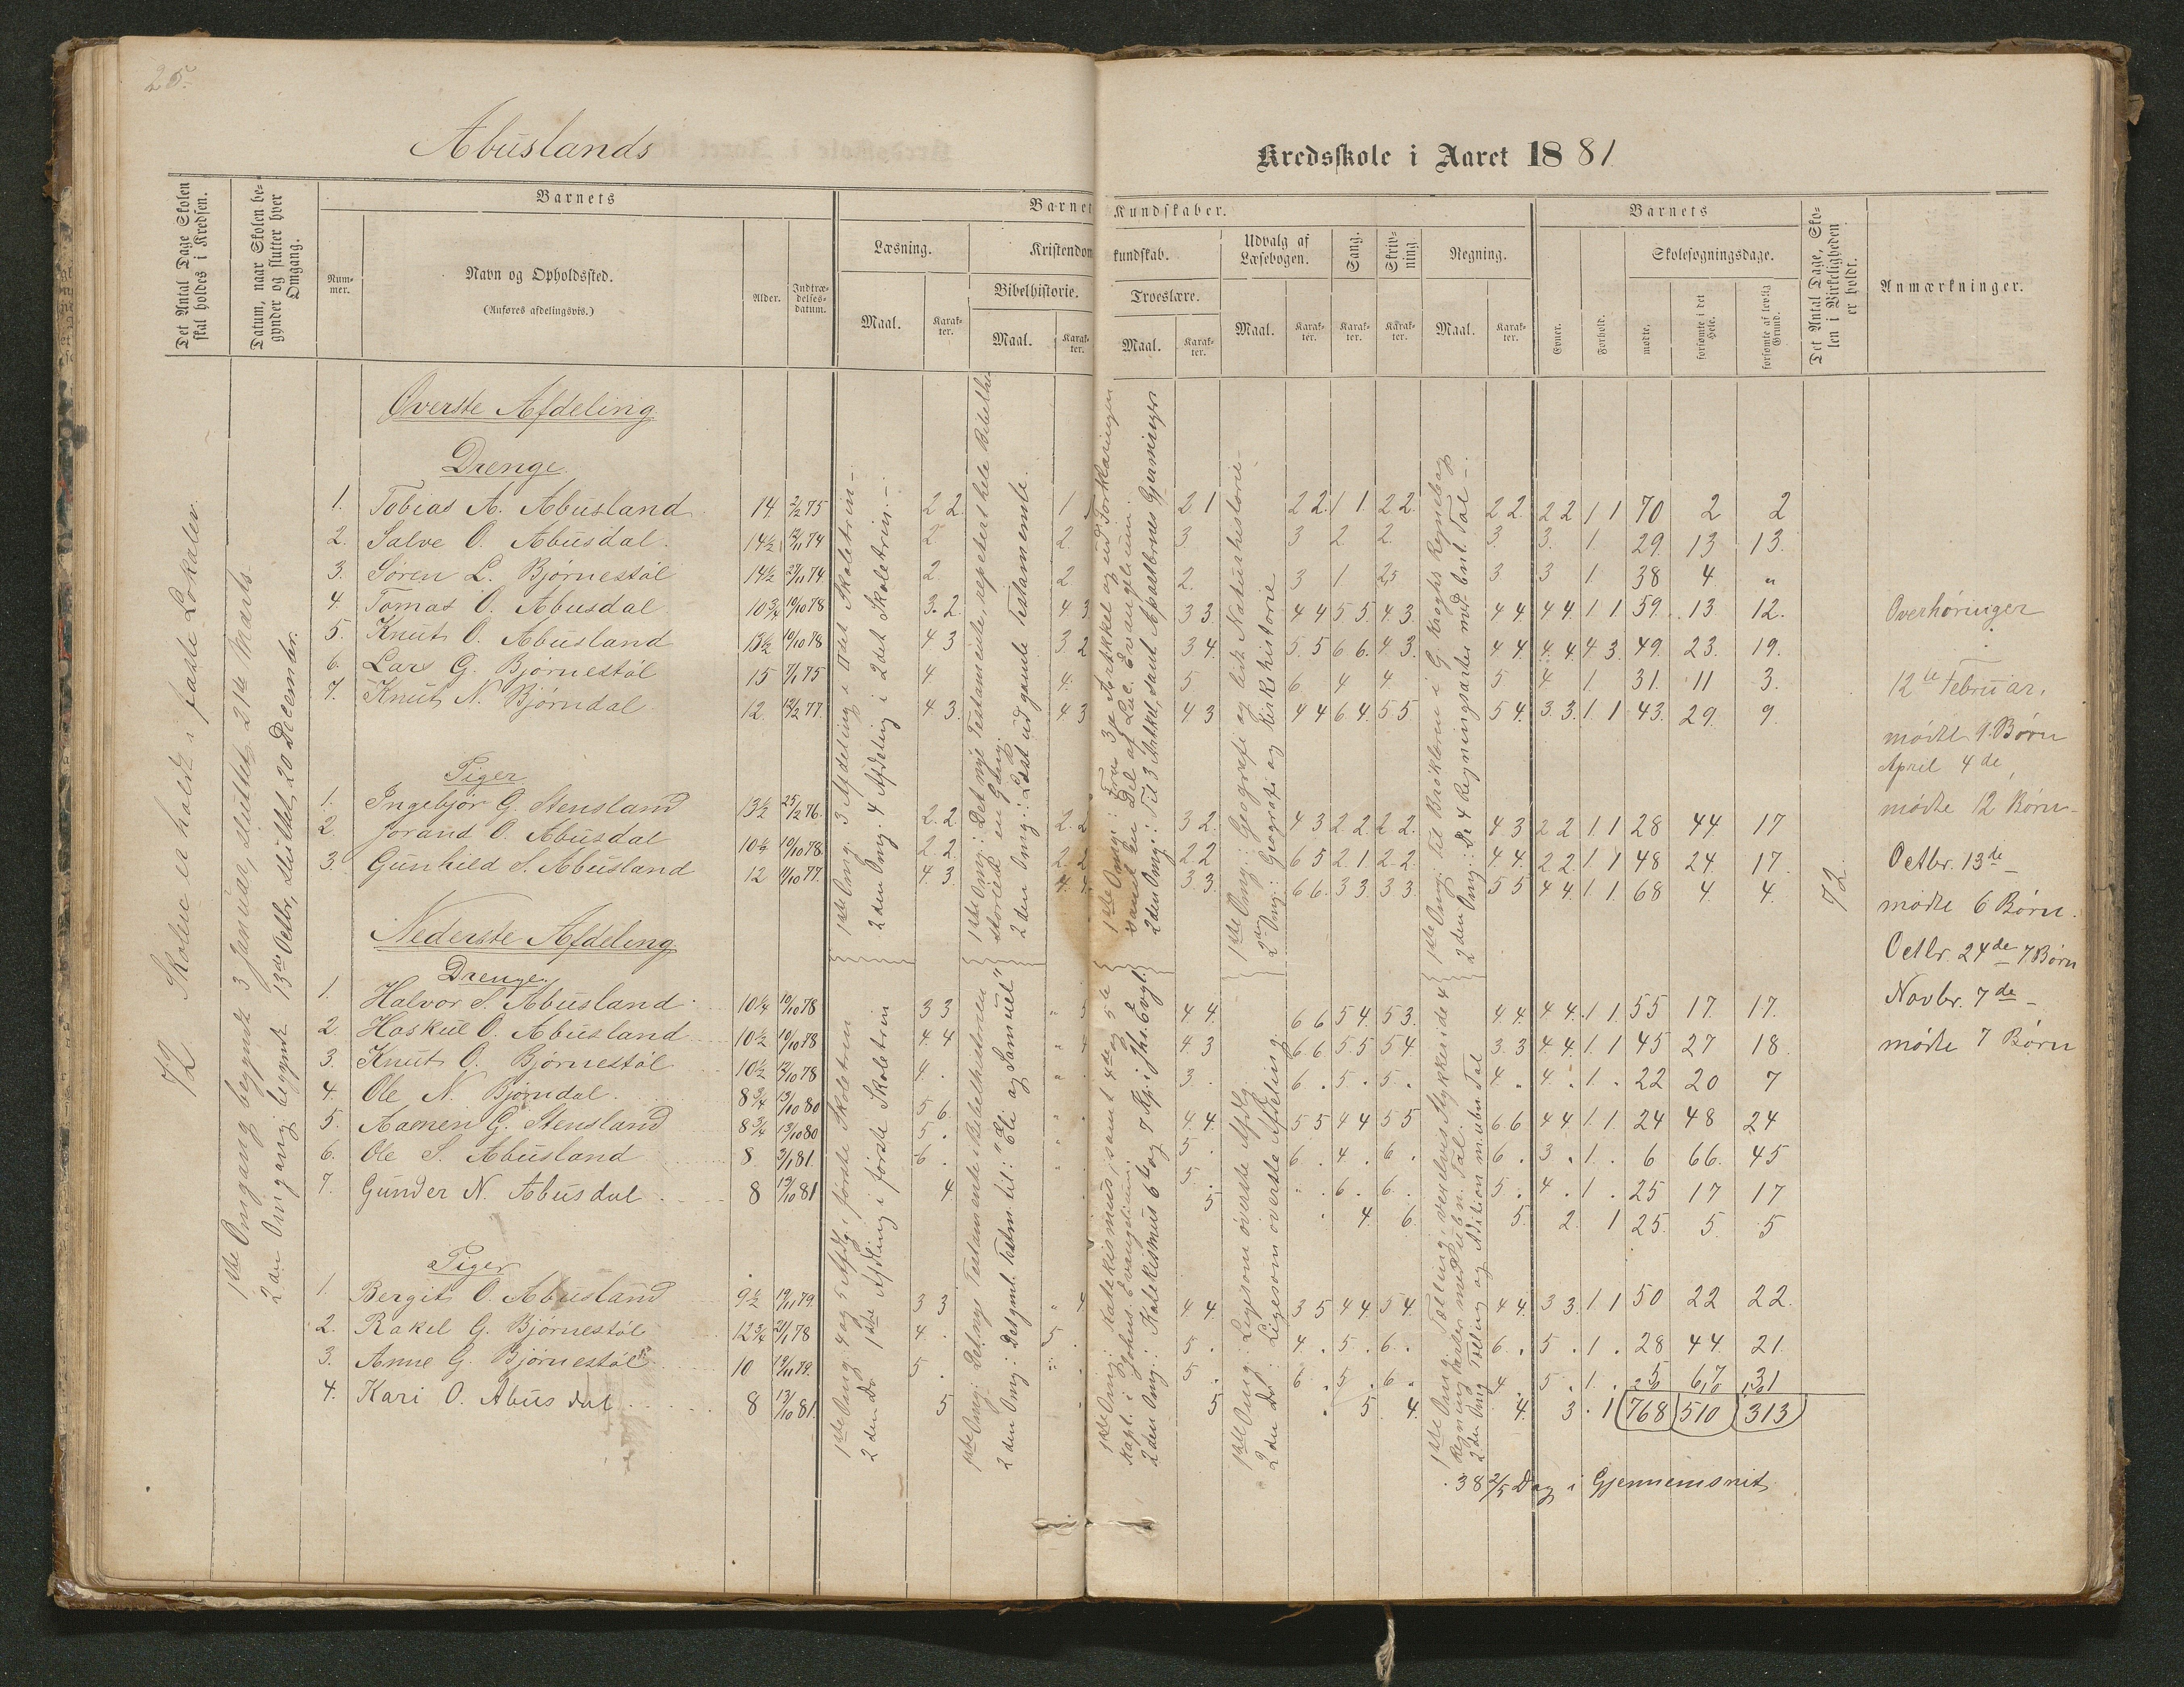 25.
Abuslands
Kredsskole i Aaret 1881
Det Antal Dage Skolen skal holdes i Kredsen.
Datum, naar Skolen begynder og slutter hver Omgang.
Barnets
Nummer.
Navn og Opholdssted.
(Anføres afdelingsvis.)
Alder.
Indtrædelsesdatum.
Barnets Kundskaber.
Læsning.
Maal.
Karakter.
Kristendomskundskab.
Bibelhistorie.
Maal.
Karakter.
Troeslære.
Maal.
Karakter.
Udvalg af Læsebogen.
Maal.
Karakter.
Sang.
Karakter.
Skrivning
Karakter.
Regning.
Maal.
Karakter.
Barnets
Evner.
Forhold.
Skolesøgningsdage.
mødte.
forsømte i det Hele.
forsømte af lovlig Grund.
Det Antal Dage, Skolen i Virkeligheden er holdt.
Anmærkninger.
72 Skolen er holdt i faste Lokaler.
1ste Omgang begyndt 3 Januar, sluttet 21de Marts.
2den Omgang begyndt 13de Octbr, sluttet 20 December.
Øverste Afdeling
Drenge.
1. Tobias A. Abusland 14 2/2 75 2 2 1 2 1 2 2 1 1 2 2 2 2 2 2 1 1 70 2 2
2. Salve O. Abusdal. 14½ 12/11 74 2 2 3 3 2 2 3 3. 1. 29. 13 13.
3. Søren L. Bjørnestøl 14½ 27/11 74 2 2 2. 3 1 2 3 3 1 38 4 "
4. Tomas O. Abusdal 10¾ 10/10 78 3. 2. 4 3 3 3 4 4 5 5. 4 3. 4 4. 4 4 1 1 59. 13 12.
5. Knut O. Abusland 13½ 10/10 78 4 3 3 2 3 4. 5 5 6 6. 4 3. 4 4. 4 4 4 3. 49. 23. 19.
6. Lars G. Bjørnestøl 15 7/1 75 4 4. 5 6 4 4 5 4 1. 31. 11 3.
7. Knut N. Bjørndal 12. 12/2 77. 4 3. 4 3 4 3 4 4 6 4. 5 5 5 4. 3 3. 1 1 43. 29. 9.
Piger
1. Ingebjør G. Stensland 13½ 25/2 76. 2. 2. 2. 2 3 2. 4 3 2 2. 2 2. 4 3 2 2 1. 1 28 44 17
2. Jorand O. Abusdal 10½ 10/10 78. 2 2. 2. 2 2 2 6 5 2 1 2 2. 4. 4. 2 2. 1. 1 48 24. 17.
3. Gunhild S. Abusland 12 11/10 77. 4. 3. 4. 4. 3 3. 6 6. 3 3 3 3. 5 5 4 4 1. 1 68 4 4.
72
Nederste Afdeling
Drenge.
1. Halvor S. Abusland 10¼ 10/10 78 3 3 " 4 4. 6 6 5 4. 5 3. 4 4. 4 4. 1 1. 55 17. 17.
2 Haskul O. Abusland 10½ 10/10 78 4. 4 " 4 4. 3 6 6 5 5. 5 4. 3. 3 4. 4. 1 1 45 27 18.
3. Knut O. Bjørnestøl 10½ 12/10 78 4. " 3. 6. 5. 5. 4. 4. 1. 22 20 7
4. Ole N. Bjørndal 8¾ 13/10 80 5 6. 4 4. 5 5 4 4 5 5 6 6 4 4 1. 1. 24 48 24
5. Aamen G. Stensland 8¾ 13/10 80 5. 5. 6. 4. 6. 6. 3. 1. 6 66. 45
6. Ole S. Abusland 8 3/1 81. 6. 5. 6. 6. 5. 4. 1. 25 17 17
7. Gunder N. Abusdal 8 13/10 81 4. 5 4. 6. 5. 2. 1 25. 5. 5
Piger
1. Bergit O. Abusland 9½ 19/11 79. 3 3 " 4 4 4. 3 5 4 4 5 4. 4 4. 3 3. 1 1 50 22 22.
2. Rakel G. Bjørnestøl 12¾ 21/1 78 4. 5. 5. 4. 5. 6. 6. 5. 1. 28 44. 21.
3. Anne G. Bjørnestøl 10 19/11 79. 5. 5. 6. 5. 6. 4. 5. 1. 5 67 31
4. Kari O. Abusdal 8 13/10 81. 5 5 5. 4. 4. 3. 1 20
768 510 313
38 2/5 Dag i Gjennemsnit
1ste Omg. 3 Afdeling i IIdet Skoletrin -
2den Omg. 4 Afdeling i 2det Skoletrin. -
1ste Omg: Det nye Testamente, repeteret hele Bibelhistorien en Gang.
2den Omg: Læst ud gamle Testamente.
1ste Omg: Fra 3je Artikkel og ud Forklaringen samt en Del af Luc. Evangelium.
2den Omg: Til 3 Artikel, samt Apostlernes Gjerninger
1ste Omg: Geografi og lidt Naturhistorie -
2den Omg: Geografi og Kirkehistorie
1ste Omg. til Brøkdom i G. Kroghs Regnebog
2den Omg: De 4 Regningsarter med bnt Tal -
1ste Omg: 4 og 5 Afdlg i første Skoletrin
2den Do 1ste Afdling i første Skoletrin
1ste Omg: Det nye Testamentes Bibelhistorien
2den Omg: Det gml. Testm. til: "Eli og Samuel"
1ste Omg: Katekismus, samt 4de og 5te Kapt. i Johus. Evangelium.
2den Omg: Katekismus 6te og 7 Kp. i Jhs. Evgl.
1ste Omg: Ligesom øverste Afdlg.
2den Do: Ligesom øverste Afdeling.
1ste Omg: Tælling, verselvis Stykker i de 4 Regningsarter med ubn. Tal.
2den Omg Tælling og Adition m. ubn Tal
Overhøringer
12te Februar.
mødte 9. Børn
April 4de
mødte 12 Børn -
Octbr. 13de
mødte 6 Børn.
Octbr. 24de 7 Børn
Novbr. 7de -
mødte 7 Børn